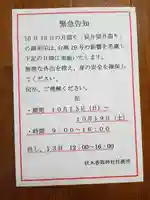 緊急告知
10月13日の月詣り、居合奉月詣り
の御朱印は、台風19号の影響を考慮し
下記の日時に実施いたします。
無理な外出を控え、身の安全を確保し
てください。
何卒、ご理解ください。
記
・期間 10月13日(日)~
10月19日(土)
・時間 9:00~16:00
但し、13日 12:00~16:00
伏木香取神社社務所